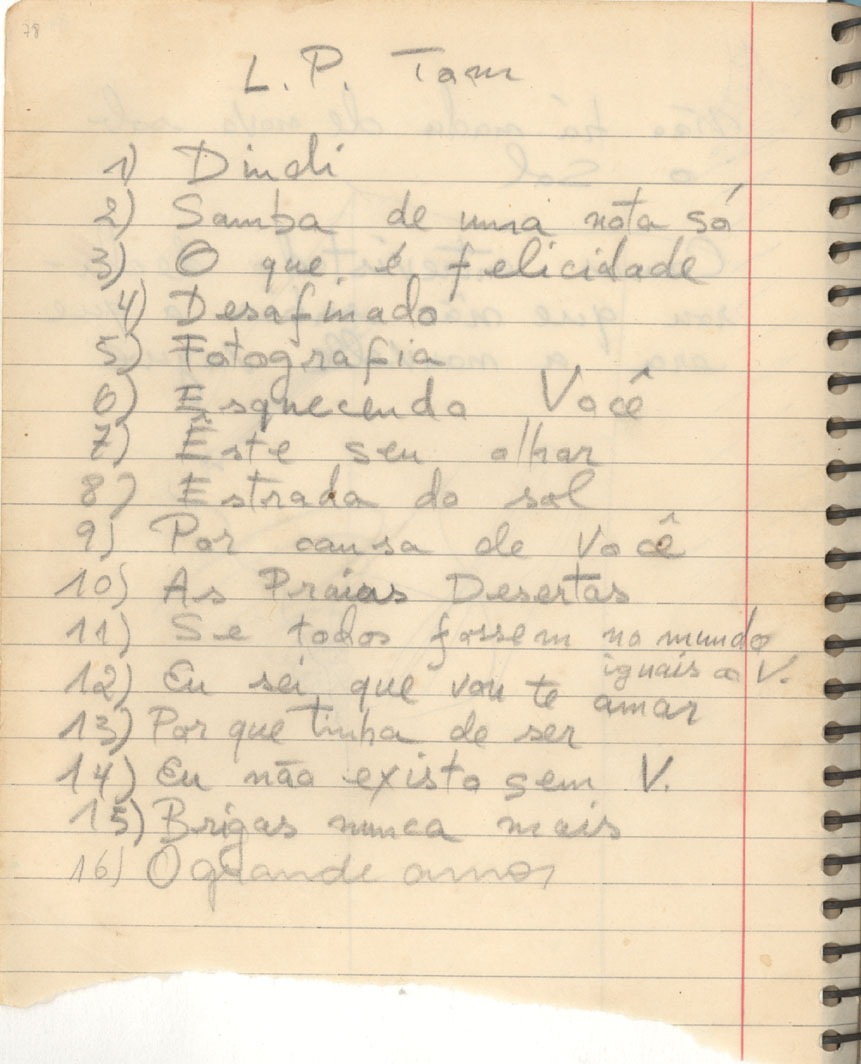 78
L. P. Tom
1) Dindi
2) Samba de uma nota só
3) O que é felicidade
4) Desafinado
5) Fotografia
6) Esquecendo Você
7) Êste seu olhar
8) Estrada do sol
9) Por causa de Você
10) As Praias Desertas
11) Se todos fossem no mundo
iguais a V.
12) Eu sei que vou te amar
13) Por que tinha de ser
14) Eu não existo sem V.
15) Brigas nunca mais
16) O grande amor